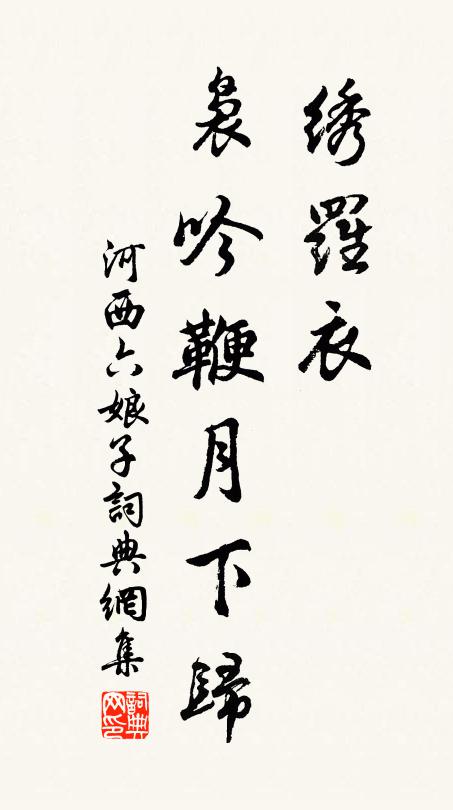 绣羅衣
裊吟鞭月下歸
河西六娘子詞典網集
詞典网印